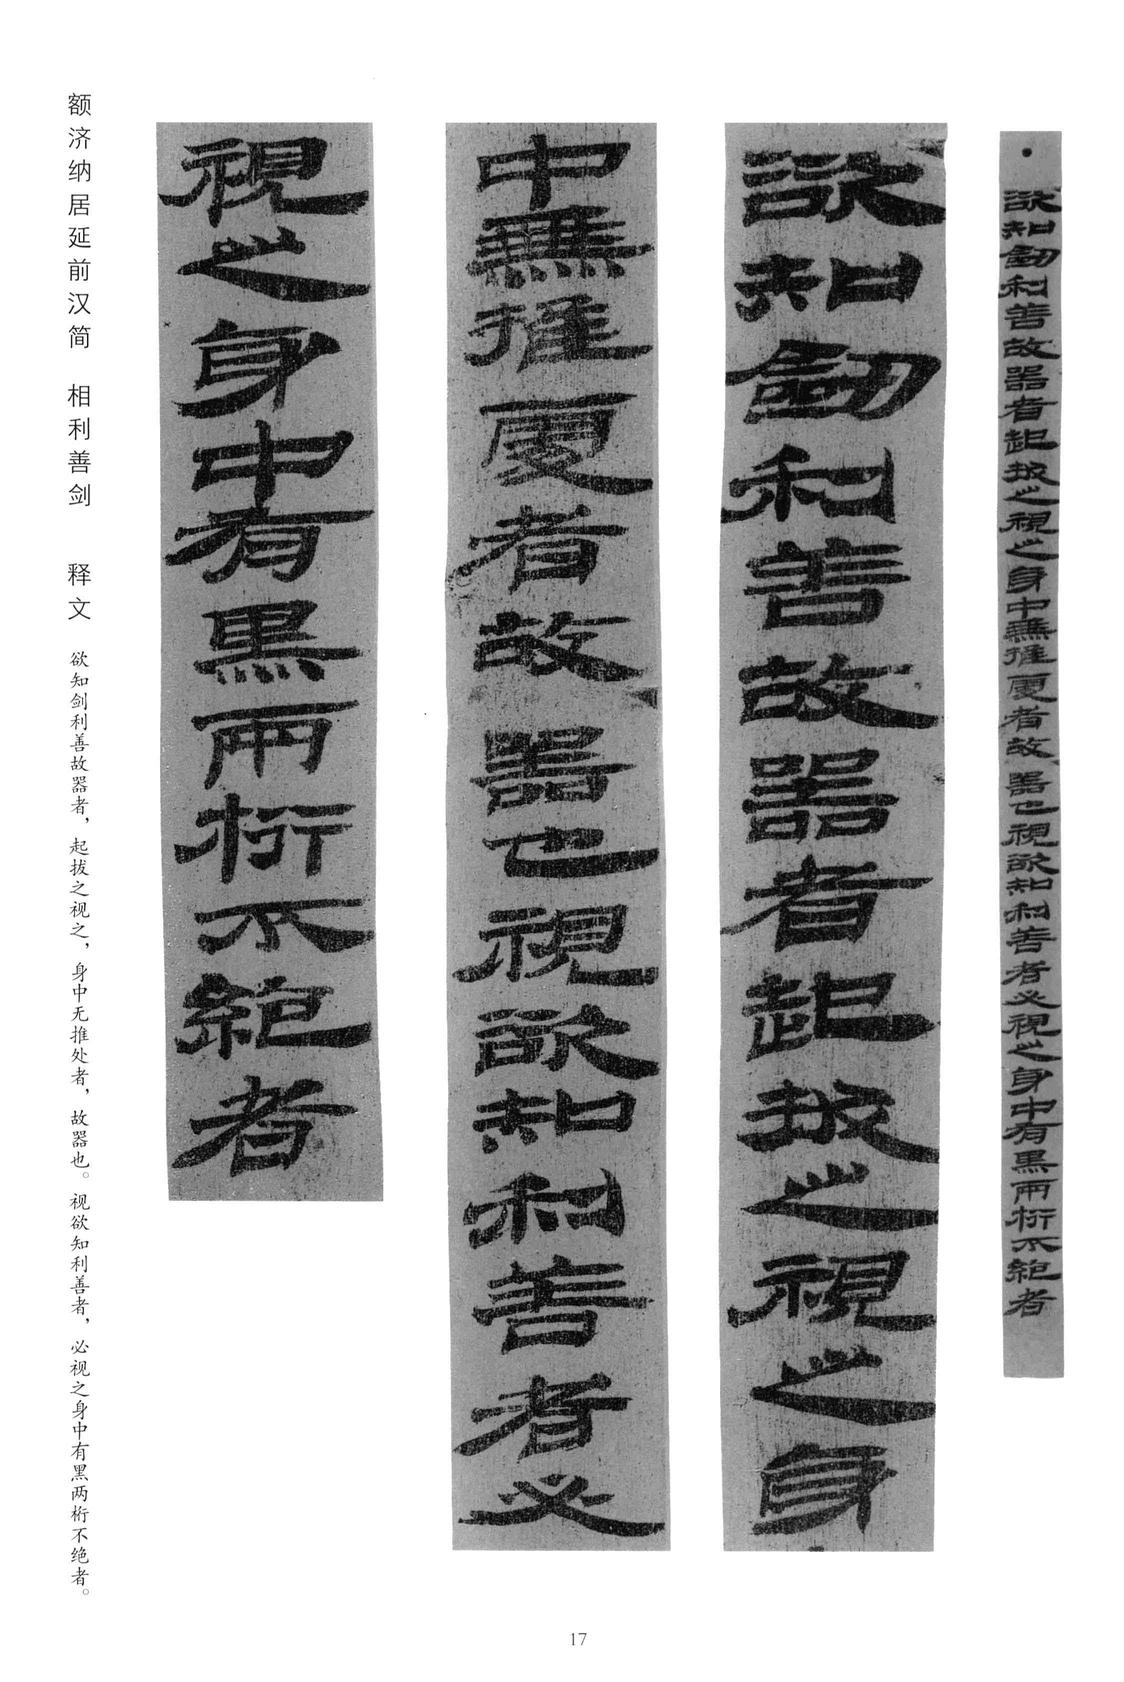 •欲知劒利善故器者起拔之視之身中無推處者故器也視欲知利善者必視之身中有黑兩桁不絕者
欲知劒利善故器者起拔之視之身
中無推處者故器也視欲知利善者必
視之身中有黑兩桁不絕者
额济纳居延前汉简 相利善剑 释文 欲知剑利善故器者，起拔之视之，身中无推处者，故器也。视欲知利善者，必视之身中有黑两桁不绝者。
17